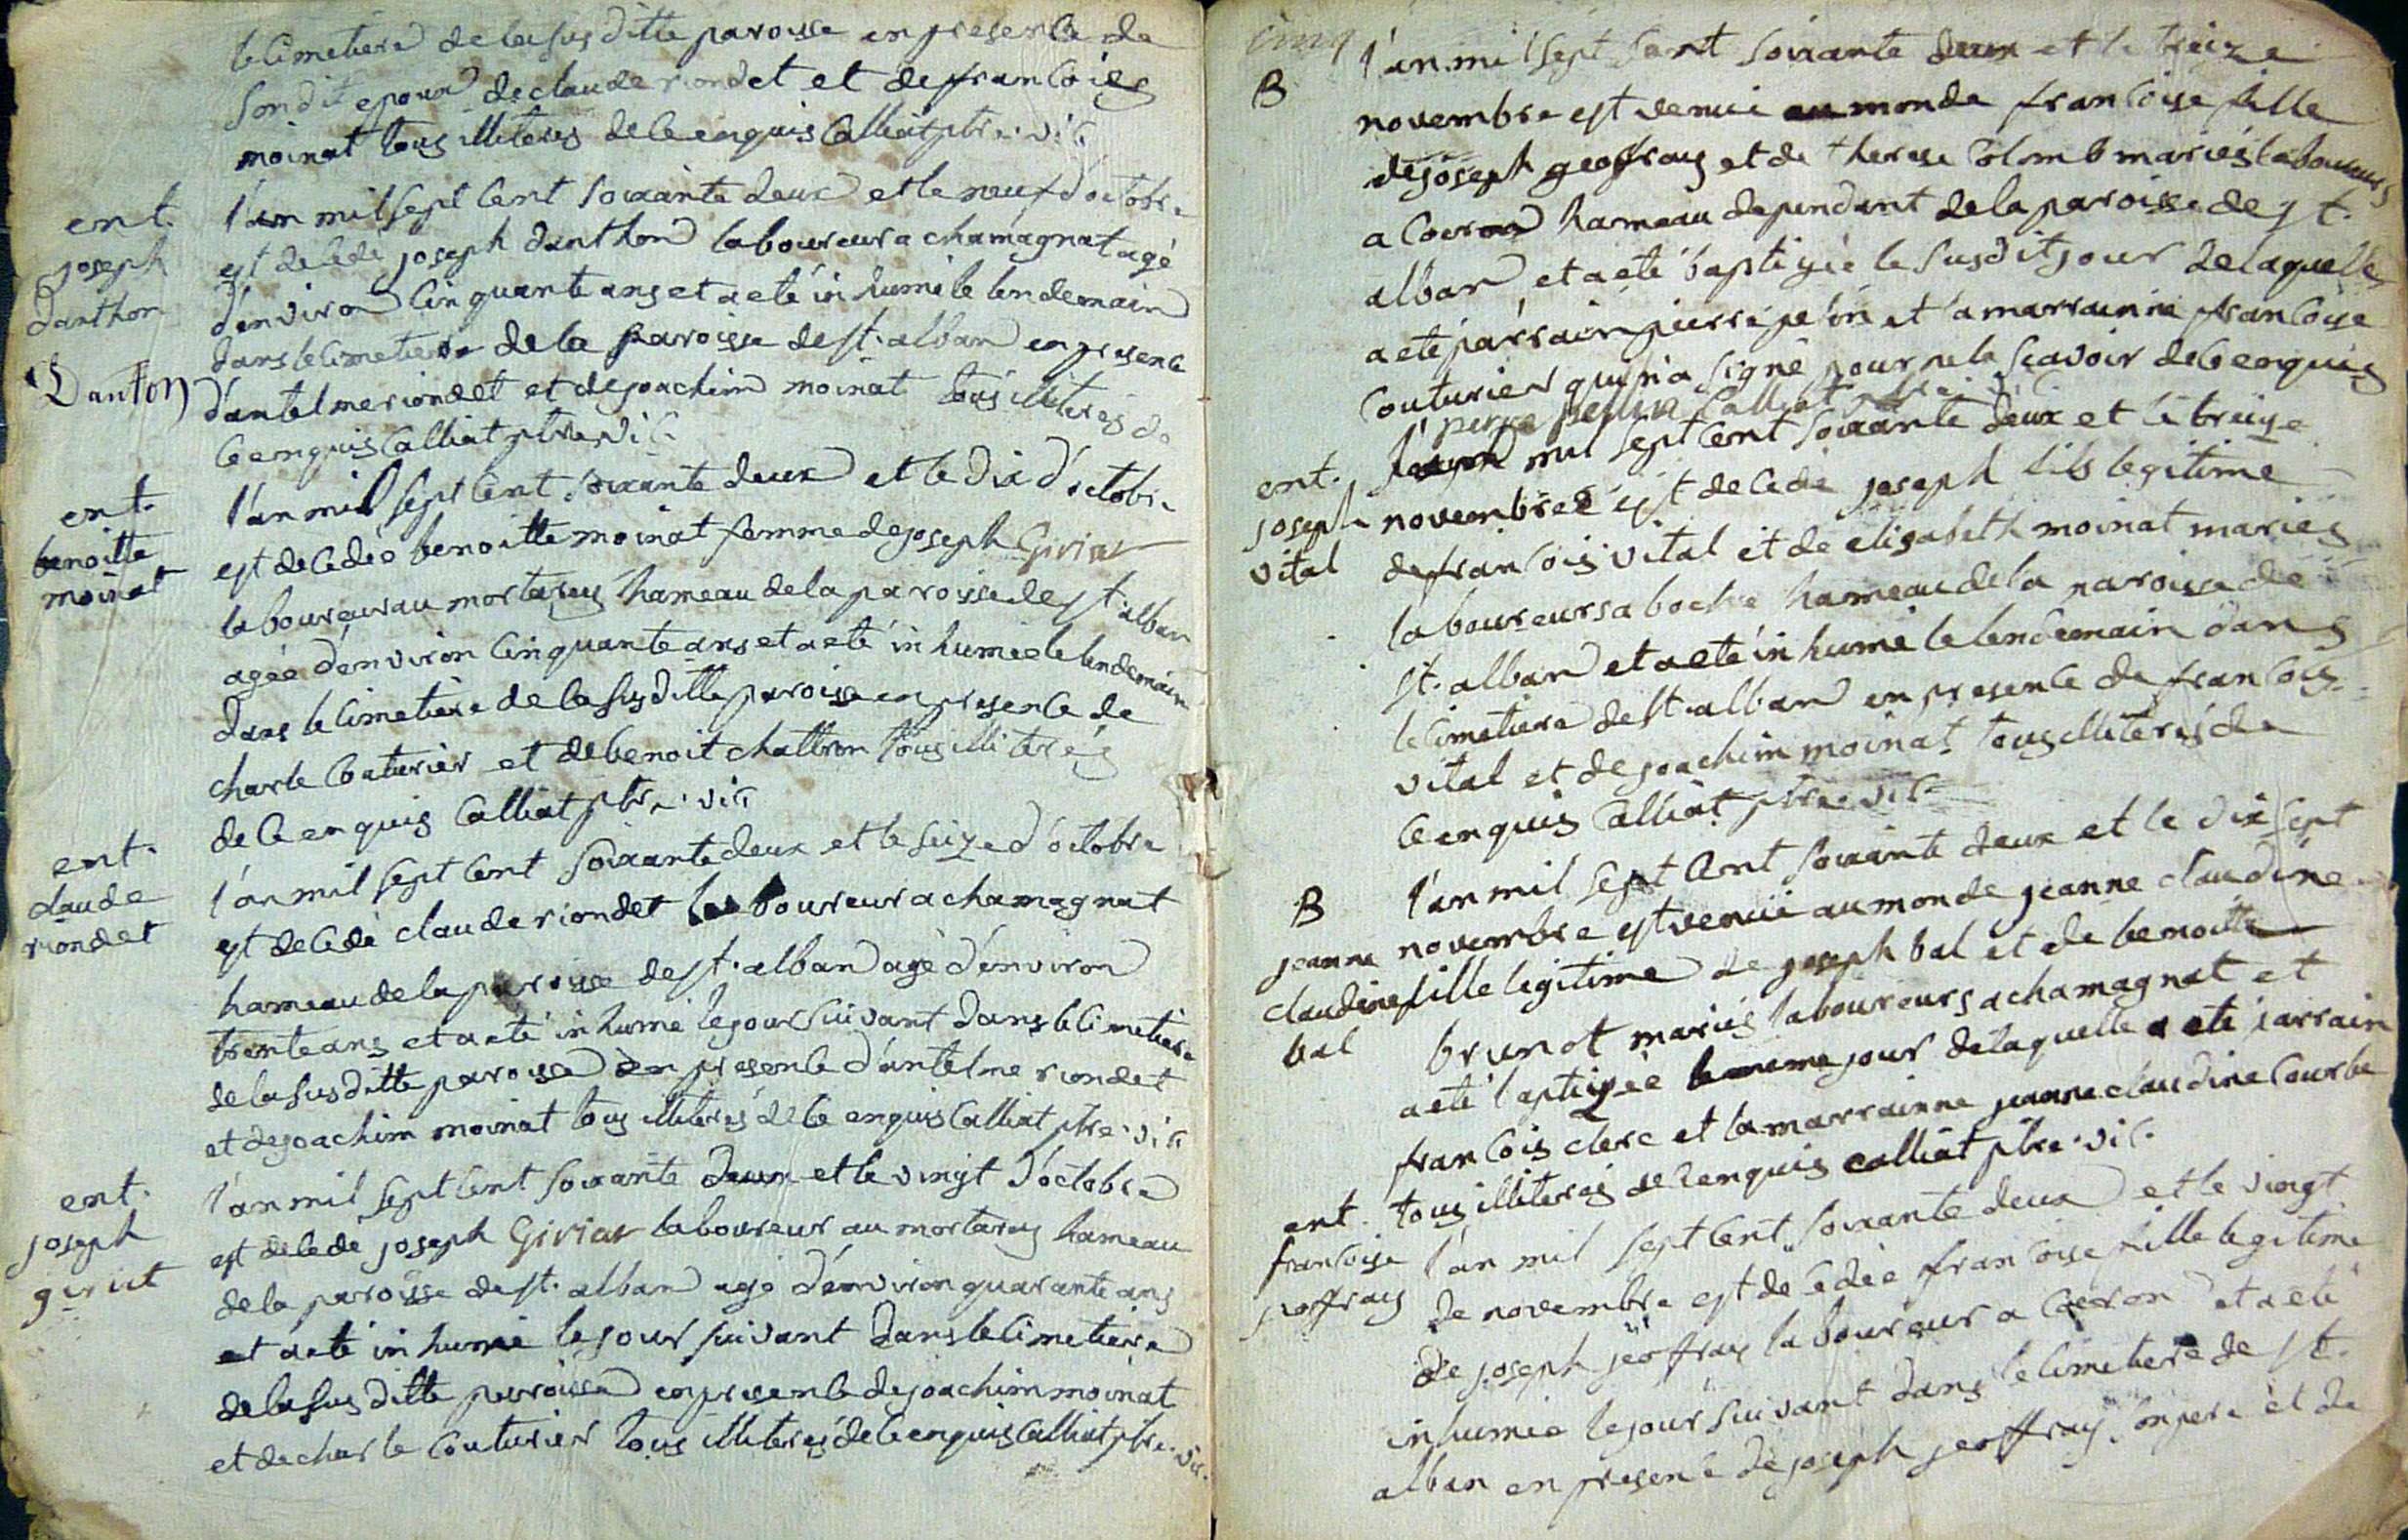 le cimetiere de la sus ditte paroisse en presence de
son dit epoux de claude riondet et de francois
moinat tous illiteres de ce enquis Calliat ptre. vic
ent. l'an mil sept cent soixante deux et le neuf d'octobre
joseph est decedé joseph danthon laboureur a chamagnat agé
danthon d'environ cinquante ans et a eté inhumé le lendemain
dans le cimetiere de la paroisse de st. alban en presence
Danton d'antelme riondet et de joachim moinat tous illiterés de
ce enquis Calliat ptre vic
ent. l'an mil sept cent soixante deux et le dix d'octobre
benoitte est decedée benoitte moinat femme de joseph Giriat
moinat laboureur au mortarey hameau de la paroisse de st. alban
agée d'environ cinquante ans et a eté inhumée le lendemain
dans le cimetiere de la sus ditte paroisse en presence de
charle Couturier et de benoit chattron tous illiterés
de ce enquis Calliat ptre. vic
ent. l'an mil sept cent soixante deux et le seize d'octobre
claude est decedé claude riondet laboureur a chamagnat
riondet hameau de la paroisse de st. alban agé d'environ
trente ans et a eté inhumé le jour suivant dans le cimetiere
de la sus ditte paroisse en presence d'antelme riondet
et de joachim moinat tous illiterés de ce enquis Calliat ptre. vic
ent. l'an mil sept cent soixante deux et le vingt d'octobre
joseph est decedé joseph Giriat laboureur au mortarey hameau
giriat de la paroisse de st. alban agé d'environ quarante ans
et a eté inhumé le jour suivant dans le cimetiere
de la sus ditte paroisse en presence de joachim moinat
et de charle Couturier tous illiterés de ce enquis Calliat ptre. vic.
cinq
l'an mil sept cent soixante deux et le treize
B novembre est venue au monde francoise fille
de joseph geoffray et de therese Colomb mariés laboureurs
a Coeron hameau dependant de la paroisse de st.
alban et a eté baptizée le susdit jour de laquelle
a eté parrain pierre pelin et la marrainne francoise
Couturier qui n'a signé pour ne le scavoir de ce enquis
pierre pellin Calliat ptre. vic
ent. l'an mil sept cent soixante deux et le treize
joseph novembre est decedé joseph fils legitime
vital de francois vital et de elisabeth moinat mariés
laboureurs a boche hameau de la paroisse de
st. alban et a eté inhumé le lendemain dans
le cimetiere de st. alban en presence de francois
vital et de joachim moinat tous illiterés de
ce enquis Calliat ptre vic
B l'an mil sept cent soixante deux et le dix sept
jeanne novembre est venue au monde jeanne claudine
claudine fille legitime de joseph bal et de benoitte
bal brunot mariés laboureurs a chamagnat et
a eté baptizée le meme jour de laquelle a eté parrain
francois clerc et la marrainne jeanne claudine Courbe
tous illiterés de ce enquis calliat ptre. vic.
ent. l'an mil sept cent soixante deux et le vingt
francoise de novembre est decedée francoise fille legitime
joffray de joseph jeoffray laboureur a Coeron et a eté
inhumée le jour suivant dans le cimetiere de st.
alban en presence de joseph jeoffray son pere et de